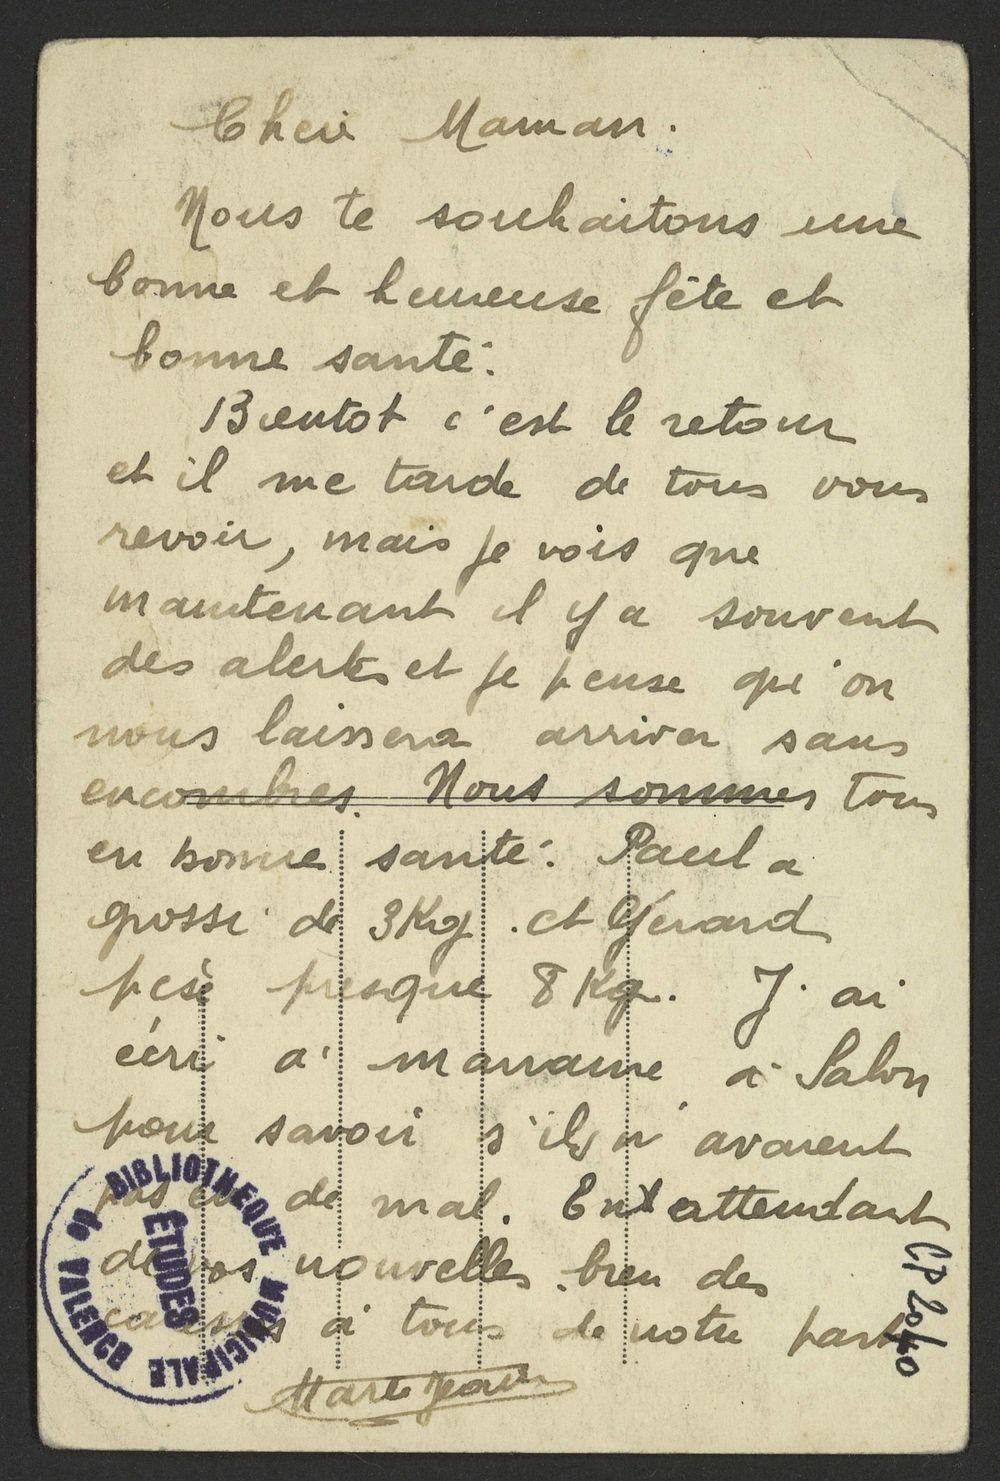 Cheri Maman.
Nous te souhaitons une
bonne et heureuse fête et
bonne santé.
Bientot c'est le retour
et il me tarde de tous vous
revoir, mais je vois que
maintenant il y a souvent
des alertes et je pense qu'on
nous laissera arriver sans
encombres. Nous sommes tous
en bonne santé. Paul a
grossi de 3Kg. et Gerard
pèse presque 8 Kg. J'ai
écri a marraine à Salon
pour savoir s'ils n'avaient
pas eu de mal. En attendant
de vos nouvelles bien des
caresses à tous de notre part
BIBLIOTHEQUE MUNICIPALE DE VALENCE
ETUDES
CP 20/40